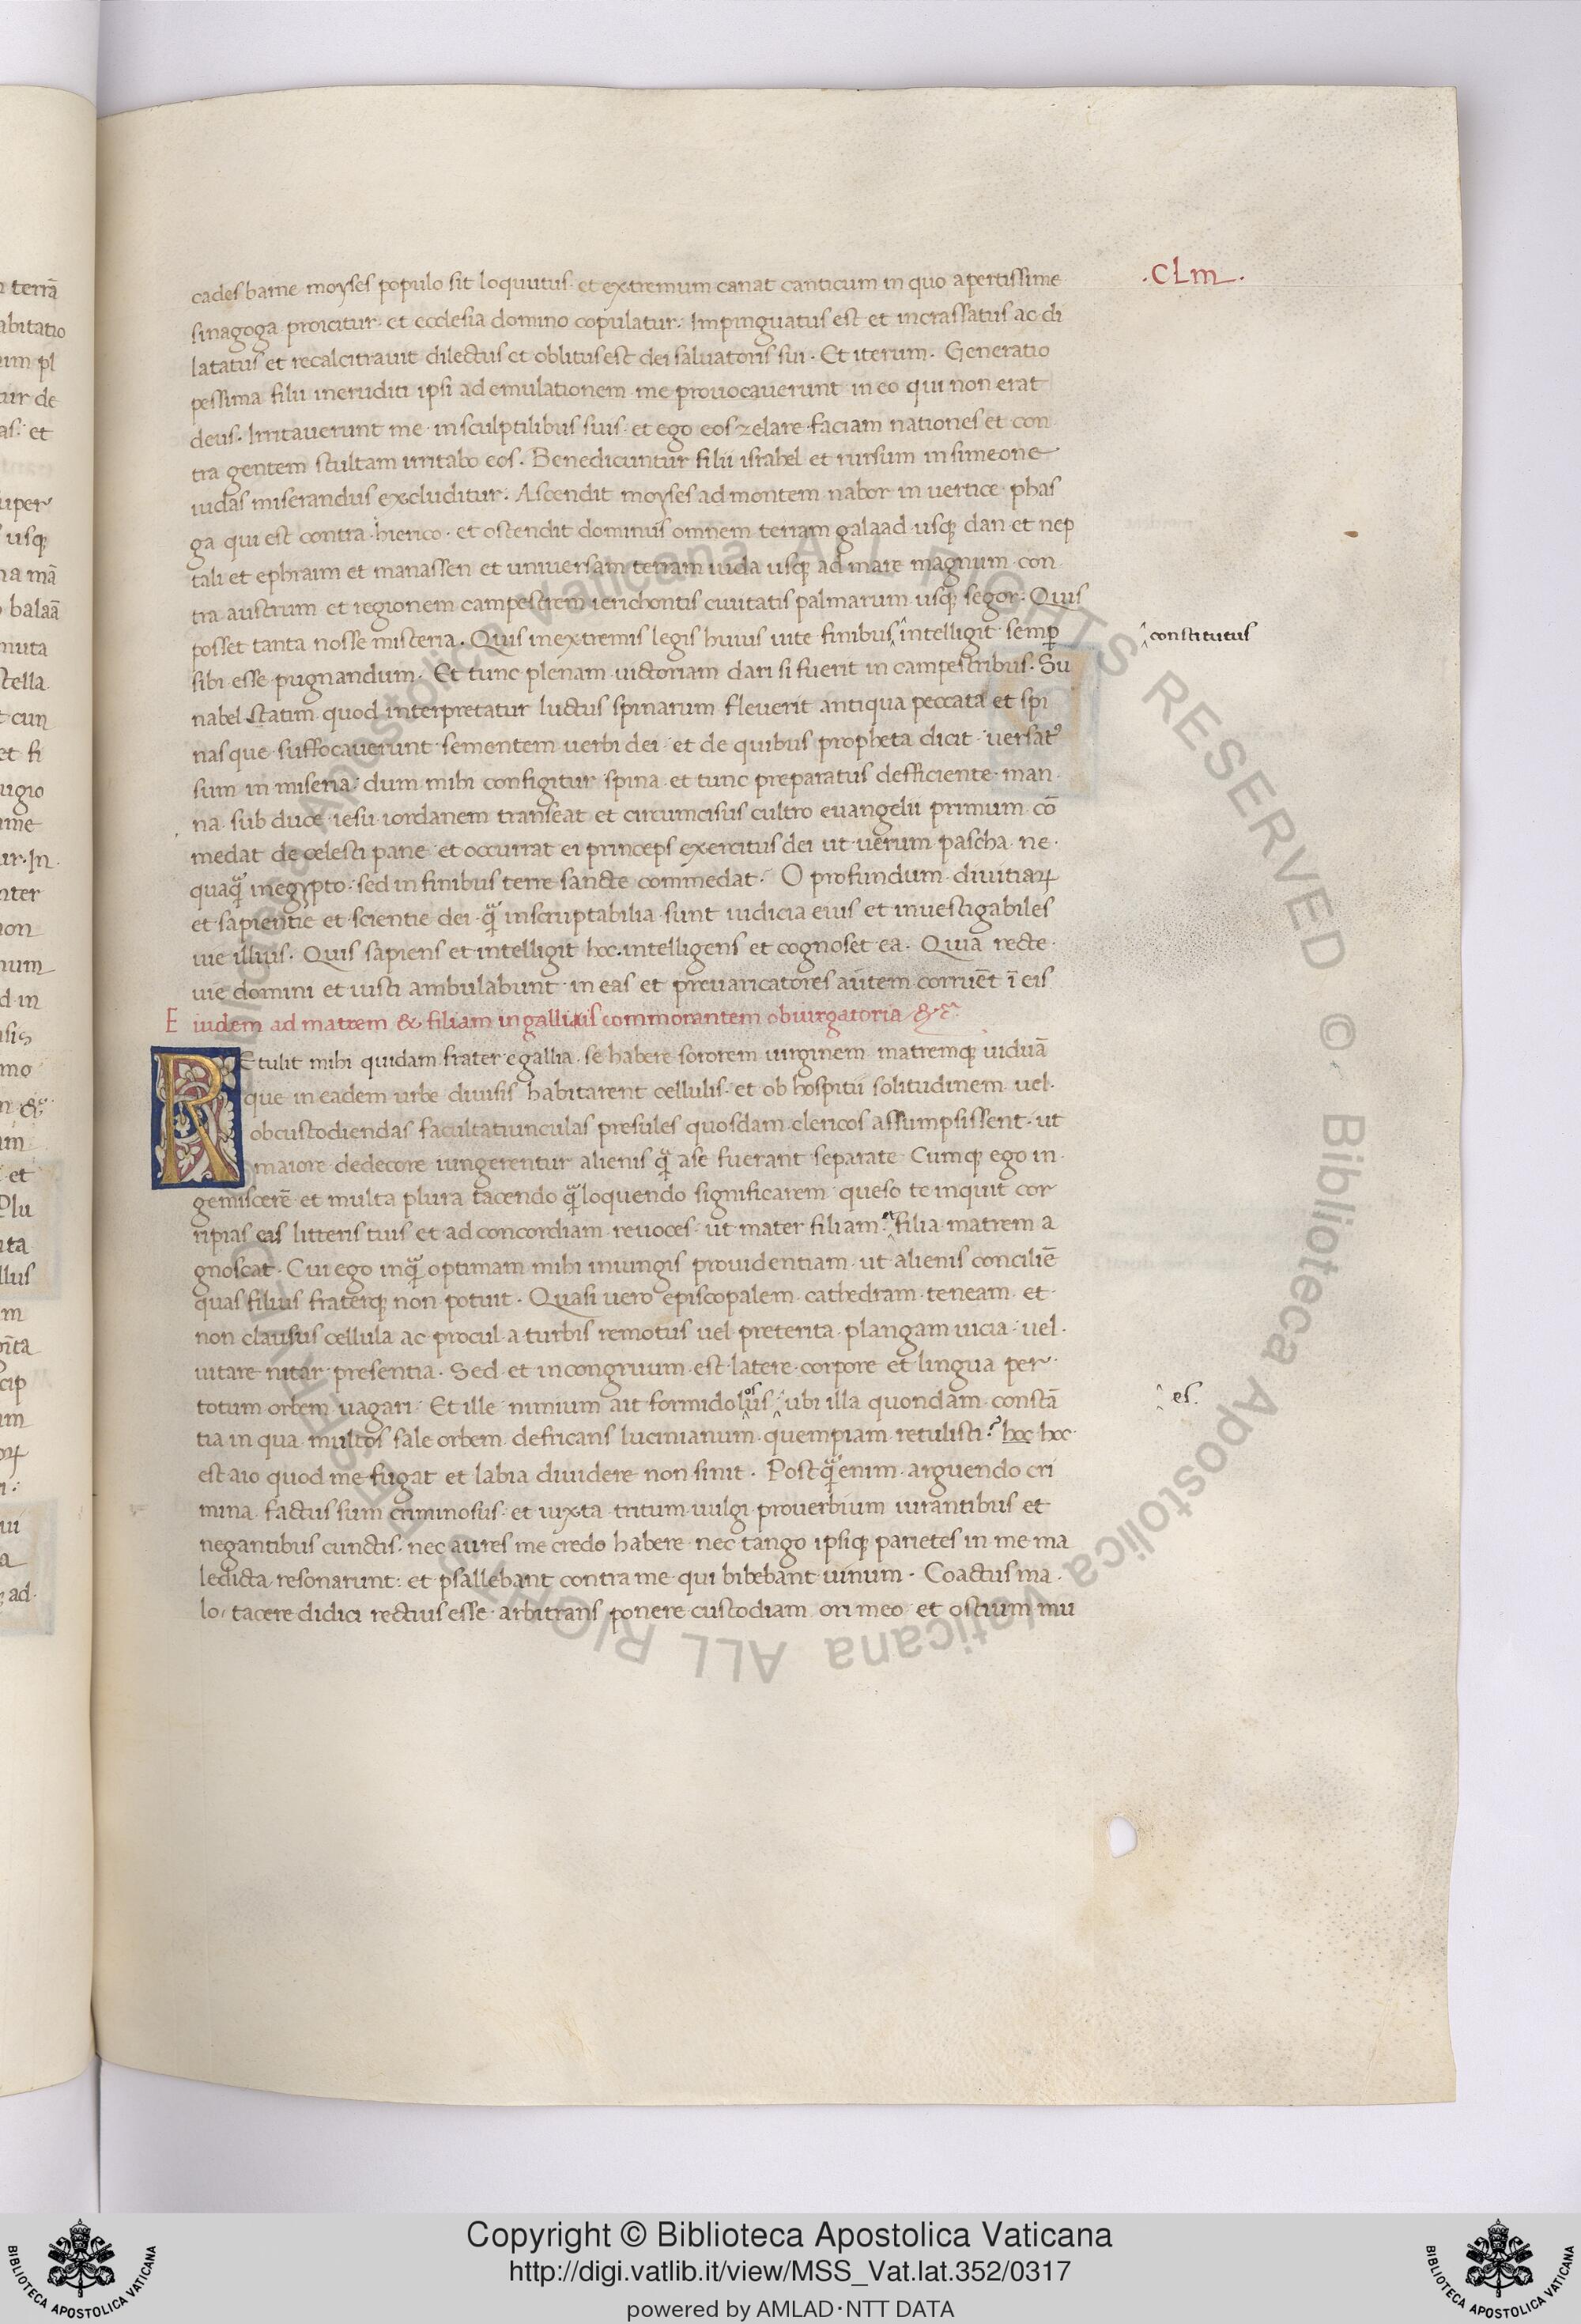 .CLm.
cades barne moyses populo sit loquutus· et extremum canat canticum in quo apertissime
sinagoga proicitur· et ecclesia domino copulatur· Impinguatus est et incrassatus ac di
latatus et recalcitravit dilectus et oblitus est dei salvatoris sui· Et iterum· Generatio
pessima filii ineruditi ipsi ad emulationem me provocaverunt in eo qui non erat
deus· Irritaverunt me in sculptilibus suis· et ego eos zelare faciam nationes et con
tra gentem stultam irritabo eos· Benedicuntur filii israhel et rursum in simeone
iudas miserandus excluditur· Ascendit moyses ad montem nabor in vertice phas
ga qui est contra hierico· et ostendit dominus omnem terram galaad usq; dan et nep
tali et ephraim et manassen et universam terram iuda usq; ad mare magnum con
tra austrum et regionem campestrem ierichontis civitatis palmarum usq; segor· Quis
posset tanta nosse misteria· Quis in extremis legis huius vite finibus ^ intelligit semp̄
^ constitutus
sibi esse pugnandum· Et tunc plenam victoriam dari si fuerit in campestribus· Su
nabel statim quod interpretatur luctus spinarum fleverit antiqua peccata et spi
nas que suffocaverunt sementem verbi dei· et de quibus propheta dicit· versat᷒
sum in miseria· dum mihi configitur spina· et tunc preparatus defficiente man
na sub duce iesu iordanem transeat et circumcisus cultro evangelii primum cō
medat de celesti pane· et occurrat ei princeps exercitus dei ut verum pascha ne
quaq̄ in egypto· sed in finibus terre sancte commedat· O profundum divitiaꝝ
et sapientie et scientie dei· q̄ inscruptabilia sunt iudicia eius et investigabiles
vie illius· Quis sapiens et intelligit hoc· intelligens et cognoset ea· Quia recte
vie domini et iusti ambulabunt in eas et prevaricatores autem corruēt ī eis
E iusdem ad matrem & filiam in galliis commorantem obiurgatoria &c̃
REtulit mihi quidam frater e gallia· se habere sororem virginem matremq; viduā
que in eadem urbe divisis habitarent cellulis· et ob hospitii solitudinem vel
ob custodiendas facultatiunculas presules quosdam clericos assumpsissent· ut
maiore dedecore iungerentur alienis q̄ a se fuerant separate Cumq; ego in
gemiscerē et multa plura tacendo q̄ loquendo significarem queso te inquit cor
ripias eas litteris tuis et ad concordiam revoces· ut mater filiam· filia matrem a
gnoscat· Cui ego inq̄ optimam mihi iniungis providentiam· ut alienis conciliē
quas filius fraterq; non potuit· Quasi vero episcopalem cathedram teneam et
non clausus cellula ac procul a turbis remotus vel preterita plangam vicia· vel
vitare nitar presentia· Sed et incongruum est latere corpore et lingua per
totum orbem vagari· Et ille nimium ait formidolosus ^ ubi illa quondam constā
^ es.
tia in qua multos sale orbem defricans lucinianum quempiam retulisti? hoc hoc
est aio quod me fugat et labia dividere non sinit· Postq̄ enim arguendo cri
mina factus sum criminosus· et iuxta tritum vulgi proverbium iurantibus et
negantibus cunctis nec aures me credo habere nec tango ipsiq; parietes in me ma
ledicta resonarunt· et psallebant contra me qui bibebant vinum· Coactus ma
lo· tacere didici rectius esse arbitrans ponere custodiam ori meo et ostium mu
Copyright © Biblioteca Apostolica Vaticana
http://digi.vatlib.it/view/MSS_Vat.lat.352/0317
powered by AMLAD·NTT DATA